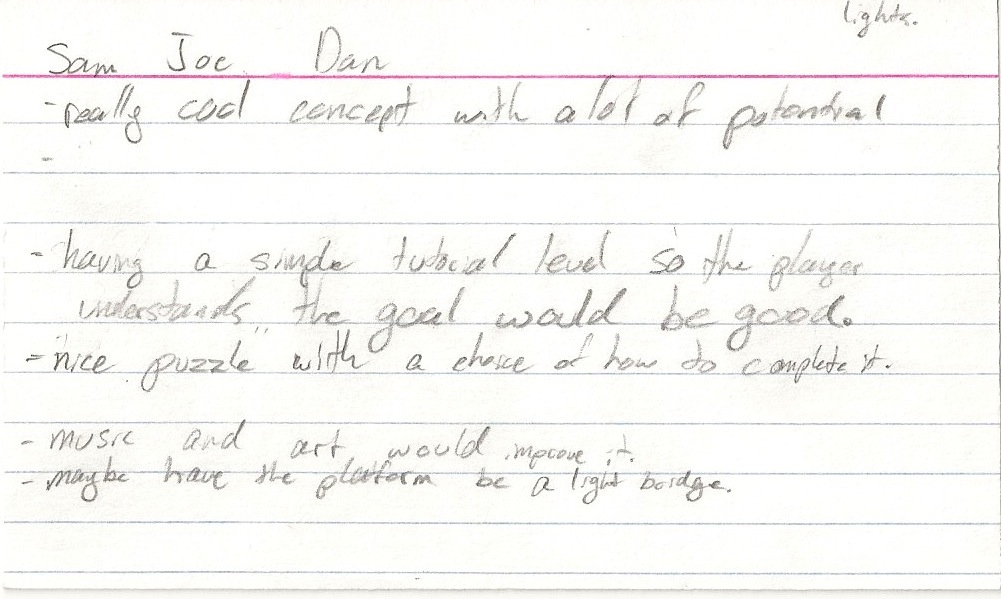 lights.
Sam Joe Dan
-really cool concept with a lot of potential
-
- having a simple tutorial level so the player
understands the goal would be good.
- nice puzzle with a choice of how to complete it.
- music and art would improve it.
- maybe have the platform be a light bridge.